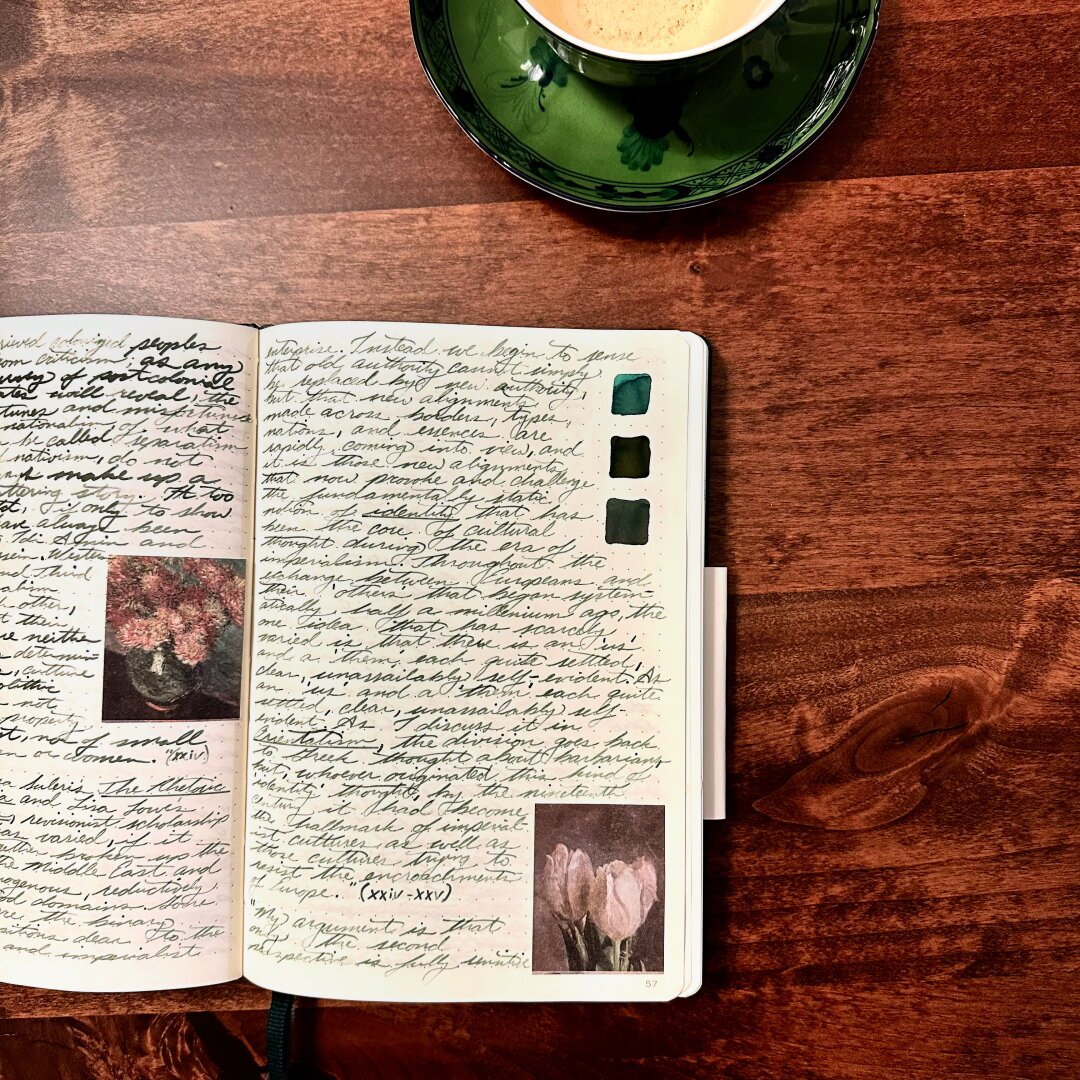 colonized peoples
from criticism; as any
of postcolonial
will reveal, the
and misfortunes
nationalism, of what
be called separatism
nativism, do not
make up a
story. It too
if only to show
have always been
Idi Amin and
Western
and Third
other,
their
are neither
culture
not
property
not of small
or women." (xxiv)
The Rhetoric
and Lisa Lowe's
revisionist scholarship
has varied, if it
broken up the
the Middle East and
reductively
domains. Gone
are the binary
dear to the
and imperialist
enterprise. Instead we begin to sense
that old authority cannot simply
be replaced by new authority,
but that new alignments
made across borders, types,
nations, and essences are
rapidly coming into view, and
it is those new alignments
that now provoke and challenge
the fundamentally static
notion of identity that has
been the core of cultural
thought during the era of
imperialism. Throughout the
exchange between Europeans and
their 'others' that began system-
atically half a millenium ago, the
one idea that has scarcely
varied is that there is an 'us'
and a 'them,' each quite settled,
clear, unassailably self-evident. As
an 'us' and a 'them,' each quite
settled, clear, unassailably self-
evident. As I discuss it in
Orientalism, the division goes back
to Greek thought about barbarians
but, whoever originated this kind of
'identity' thought, by the nineteenth
century it had become
the hallmark of imperial-
ist cultures as well as
those cultures trying to
resist the encroachments
of Europe." (xxiv-xxv)
"My argument is that
only the second
perspective is fully sensitive
57